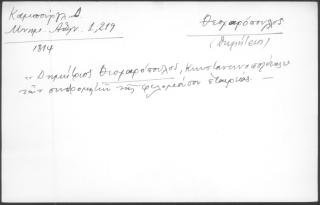 Καμπούρογλ. Δ
Μνημ. Αθην. 1, 219
1814
Θεομαρόπουλος
(Δημήτριος)
„ Δημήτριος Θεομαρόπουλος, Κωνσταντινουπολίτης
των συνδρομητών της φιλομούσου εταιρείας. —